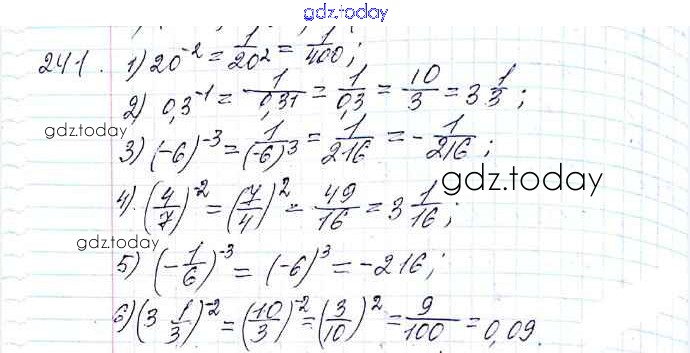 gdz.today
241. 1) 20^{-2} = \frac{1}{20^2} = \frac{1}{400};
2) 0,3^{-1} = \frac{1}{0,3^1} = \frac{1}{0,3} = \frac{10}{3} = 3\frac{1}{3};
gdz.today
3) (-6)^{-3} = \frac{1}{(-6)^3} = \frac{1}{216} = -\frac{1}{216};
gdz.today
4) (\frac{4}{7})^{-2} = (\frac{7}{4})^2 = \frac{49}{16} = 3\frac{1}{16};
gdz.today
5) (-\frac{1}{6})^{-3} = (-6)^3 = -216;
6) (3\frac{1}{3})^{-2} = (\frac{10}{3})^{-2} = (\frac{3}{10})^2 = \frac{9}{100} = 0,09.